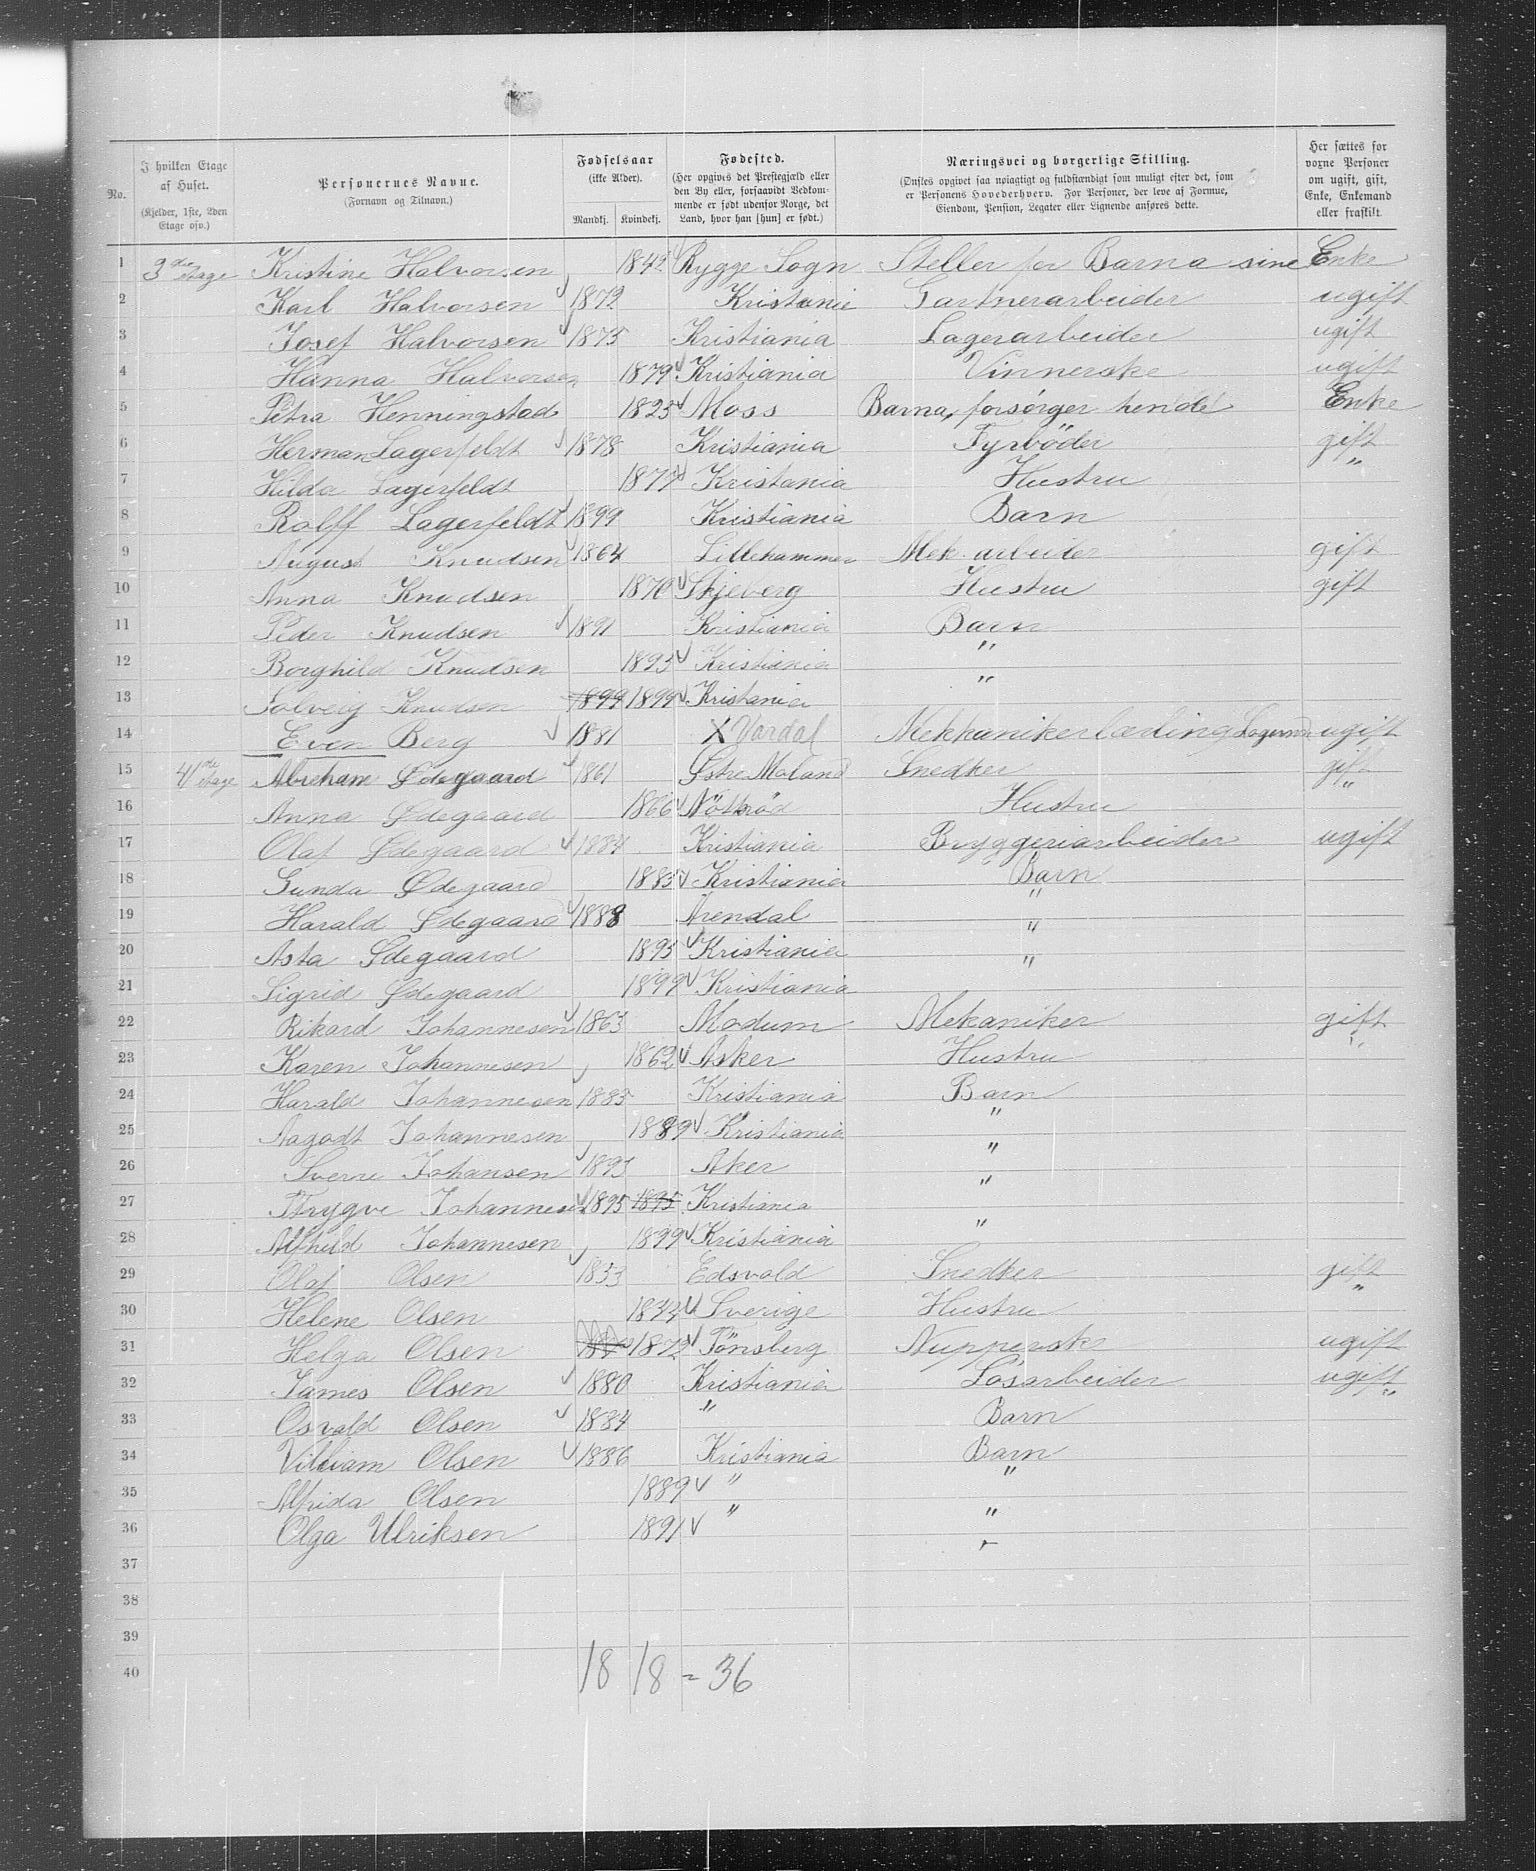 No. | I hvilken Etage af Huset. (Kjelder, 1ste, 2den Etage osv.) | Personernes Navne. (Fornavn og Tilnavn.) | Fødselsaar (ikke Alder). Mandkj. Kvindekj. | Fødested. (Her opgives det Prestegjæld eller den By eller, forsaavidt Vedkommende er født udenfor Norge, det Land, hvor han [hun] er født.) | Næringsvei og borgerlige Stilling. (Ønskes opgivet saa nøiagtigt og fuldstændigt som muligt efter det, som er Personens Hovederhverv. For Personer, der leve af Formue, Eiendom, Pension, Legater eller Lignende anføres dette. | Her sættes for voxne Personer om ugift, gift, Enke, Enkemand eller fraskilt.
1 3die etage Kristine Halvorsen 1842 Rygge Sogn Steller for Barna sine Enke
2 Karl Halvorsen 1872 Kristania Gartnerarbeider ugift
3 Josef Halvorsen 1875 Kristiania Lagerarbeider ugift
4 Hanna Halvorsen 1879 Kristiania Vinnerske ugift
5 Petra Henningstad 1825 Moss Barna, forsørger hende Enke
6 Herman Lagerfeldt 1878 Kristiania Fyrbøder gift
7 Hilda Lagerfeldt 1877 Kristania Hustru "
8 Rolff Lagerfeldt 1899 Kristiania Barn
9 August Knudsen 1864 Lillehammer Mek. arbeider gift
10 Anna Knudsen 1870 Skjeberg Hustru gift
11 Peder Knudsen 1891 Kristiania Barn
12 Borghild Knudsen 1895 Kristiania "
13 Solveig Knudsen 1899 1899 Kristania "
14 Even Berg 1881 X Vardal Mekkanikerlærling ugift
15 4de etage Abreham Ødegaard 1861 Østre Moland Snedker gift
16 Anna Ødegaard 1866 Hustru "
17 Olaf Ødegaard 1884 Kristiania Bryggeriarbeider ugift
18 Gunda Ødegaard 1885 Kristiania Barn
19 Harald Ødegaard 1888 Arendal "
20 Asta Ødegaard 1895 Kristiania "
21 Sigrid Ødegaard 1899 Kristiania "
22 Rikard Johannesen 1863 Modum Mekaniker gift
23 Karen Johannesen 1862 Asker Hustru "
24 Harald Johannesen 1885 Kristiania Barn
25 Aagodt Johannesen 1889 Kristiania "
26 Sverre Johansen 1893 Aker "
27 Trygve Johannesen 1895 1895 Kristiania "
28 Alfhild Johannesen 1899 Kristiania "
29 Olaf Olsen 1853 Edsvold Snedker gift
30 Helene Olsen 1844 Sverige Hustru "
31 Helga Olsen 1872 Tönsberg Nupperske ugift
32 James Olsen 1880 Kristiania Løsarbeider ugift
33 Osvald Olsen 1884 " Barn "
34 Villiam Olsen 1886 Kristiania Barn
35 Alfrida Olsen 1889 " "
36 Olga Ulriksen 1891 " "
37
38
39
40 18 18 = 36